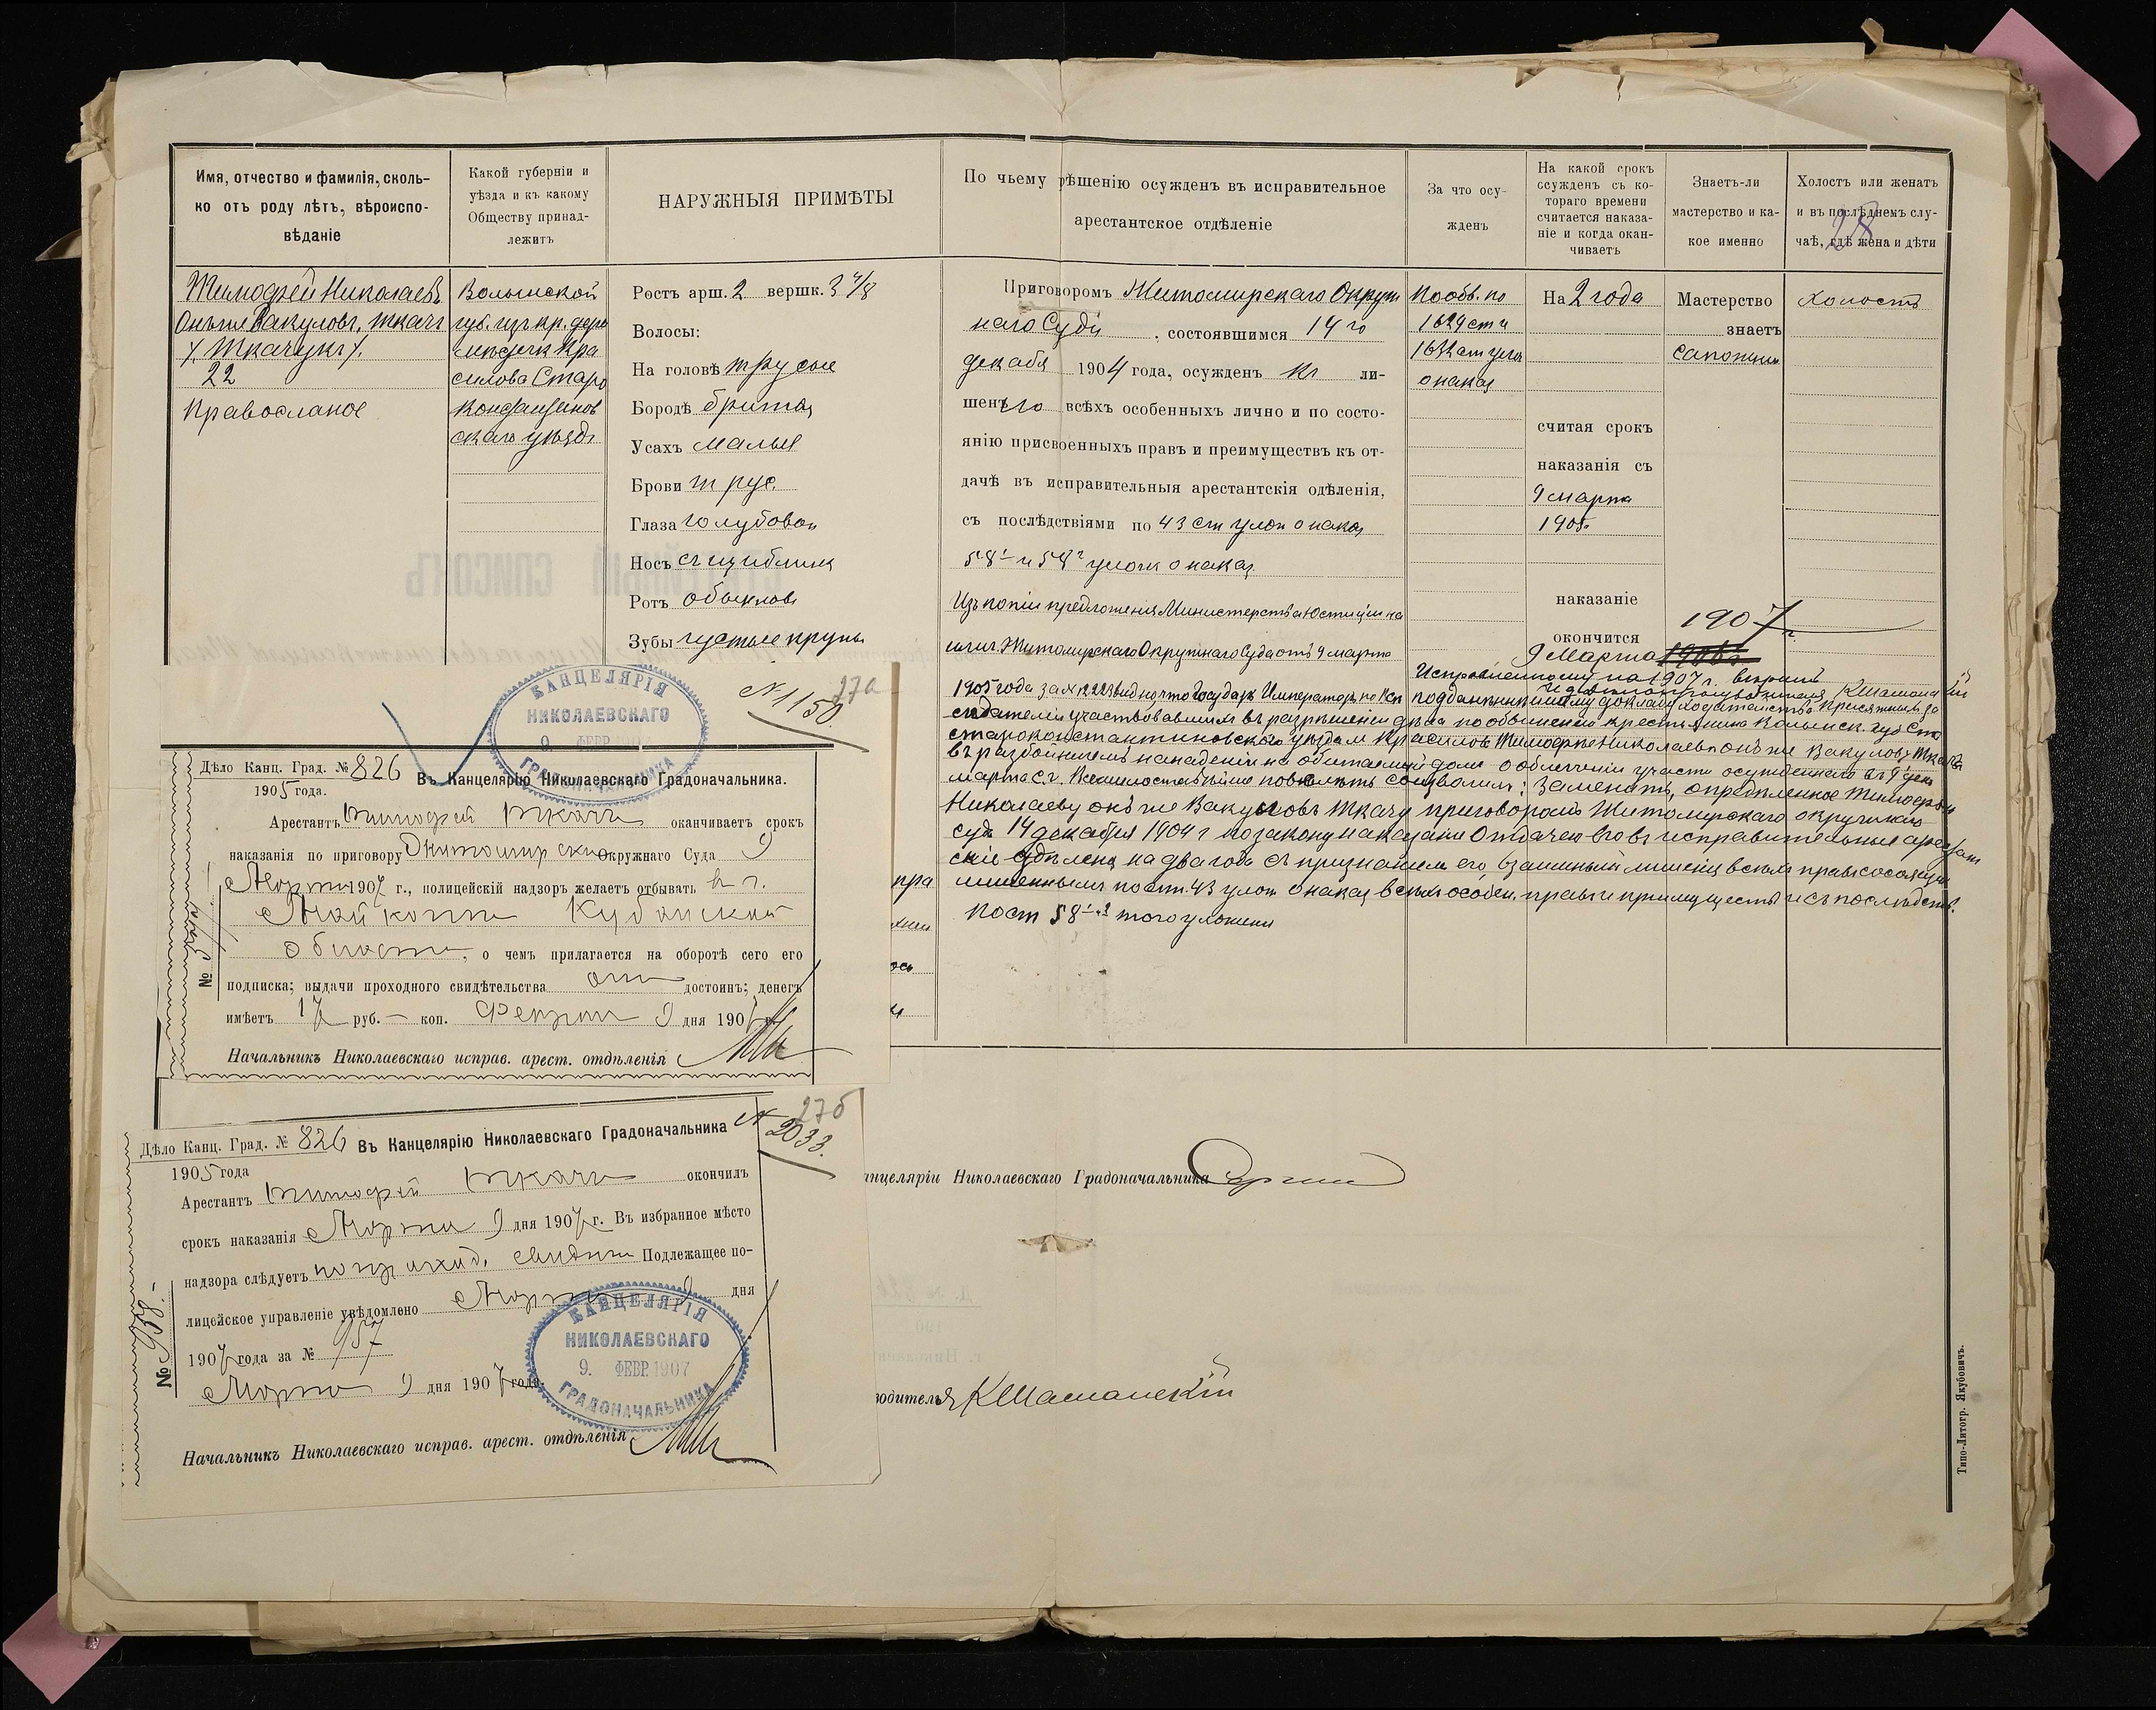 28
Имя, отчество и фамилія, сколь-
ко отъ роду лѣтъ, вѣроиспо-
вѣданіе
Тимофей Николаевъ
Онъ же Вакуловъ, Ткачъ
/. Ткачукъ /.
22
Православное
Какой губерніи и
уѣзда и къ какому
Обществу принад-
лежитъ
Волынской
губ. изъ кр.
Кра
силова Старо
Констанинов
скаго уѣзда
НАРУЖНЫЯ ПРИМѢТЫ
Ростъ арш. 2 вершк. 3 4/8
Волосы:
На головѣ т русые
Бородѣ бритая
Усахъ малые
Брови т рус.
Глаза голубован
Носъ
Ротъ обыкнов
Зубы густые крупн
По чьему рѣшенію осужденъ въ исправительное
арестантское отдѣленіе
Приговоромъ Житомирскаго Окруж
наго Суда, состоявшимся 14 го
декабя 1904 года, осужденъ къ ли-
шенію всѣхъ особенныхъ лично и по состо-
янію присвоенныхъ правъ и преимуществъ къ от-
дачѣ въ исправительныя арестантскія одѣленія,
съ послѣдствіями по 43 ст улож о наказ
58¹ и 58² улож о наказ
Изъ копіи предложенія Министерства Юстиціи на
имя г. Житомирскаго Окружнаго Суда отъ 9 марта
1905 года за № 12223 видно, что Государь Императоръ по Всеп подданнѣйшему докладу ходатайства Присяжныхъ за
сѣдателей участвовавшихъ въ разрѣшеніи дѣла по обвиненію крестьянина Волынск. губ Ста
староконстантиновскаго уѣзда м Красилов Тимофея Николаева онъ же Вакулов Ткача
въ разбойничемъ нападеніи на обитаемый домъ о облегченіи участи осужденнаго въ 9 день
марта с.г. Всемилостивѣйше повелѣть соизволилъ: Замѣнить, опредѣленное Тимофею
Николаеву онъ же Вакуловъ Ткачу приговоромъ Житомирскаго окружнаго
суда 14 декабря 1904 г по закону наказаніе Отдачею его въ исправительные арестант
скіе отдѣленія на два года съ признаніемъ его, взамѣнъ лишенія всѣхъ правъ состоянія
лишеннымъ по ст. 43 улож о наказ всѣхъ особен. правъ и преимуществъ и съ послѣдств.
по ст 58¹ и ² того уложенія
За что осу-
жденъ
По обв. по
1629 ст и
1632 ст улож
о наказ
На какой срокъ
осужденъ съ ко-
тораго времени
считается наказа-
ніе и когда окан-
чиваетъ
На 2 года
считая срокъ
наказанія съ
9 марта
1905.
наказаніе
окончится
9 Марта 1906 г.
1907 г.
Исправленному на 1907 г. вѣрить
КШаманскій
Знаетъ-ли
мастерство и ка-
кое именно
Мастерство
знаетъ
сапожни
Холостъ или женатъ
и въ послѣднемъ слу-
чаѣ, гдѣ жена и дѣти
холостъ
27а
№ 1150.
КАНЦЕЛЯРІЯ
НИКОЛАЕВСКАГО
9. ФЕВР. 1907
ГРАДОНАЧАЛЬНИКА
Дѣло Канц. Град. № 826
1905 года.
Въ Канцелярію Николаевскаго Градоначальника.
Арестантъ Тимофей Ткачъ оканчиваетъ срокъ
наказанія по приговору Житомирскаго Окружнаго Суда 9
Марта 1907 г., полицейскій надзоръ желаетъ отбывать в г.
Майкопѣ Кубанской
области, о чемъ прилагается на оборотѣ сего его
подписка; выдачи проходного свидѣтельства достоинъ; денегъ
имѣетъ 17 руб. — коп. Февраля 9 дня 1907 г.
Начальникъ Николаевскаго исправ. арест. отдѣленія
№
пра
27б
№ 2033.
Дѣло Канц. Град. № 826
1905 года
Въ Канцелярію Николаевскаго Градоначальника
Арестантъ Тимофей Ткачъ окончилъ
срокъ наказанія Марта 9 дня 1907 г. Въ избранное мѣсто
надзора слѣдуетъ по проход. свидѣт Подлежащее по-
лицейское управленіе увѣдомлено Марта 9 дня
1907 года за № 957
Марта 9 дня 1907 года.
Начальникъ Николаевскаго исправ. арест. отдѣленія
№ 958.
КАНЦЕЛЯРІЯ
НИКОЛАЕВСКАГО
9. ФЕВР. 1907
ГРАДОНАЧАЛЬНИКА
анцеляріи Николаевскаго Градоначальника
водителя КШаманскій
Типо-Литогр. Якубовичъ.